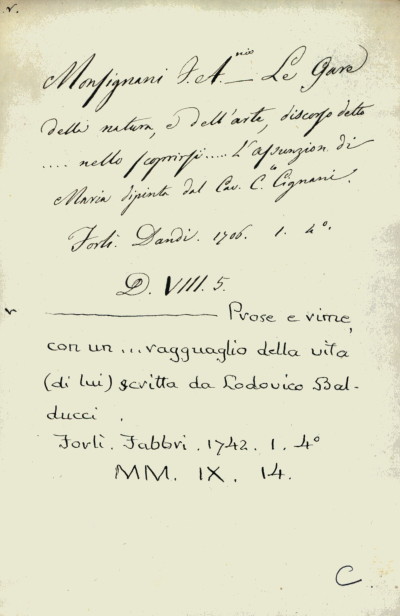 v.
Monsignani F. A.nio — Le Gare
della natura, e dell'arte, discorso detto
.... nello scoprirsi .... L'assunzion. di
Maria dipinta dal Cav. C.lo Cignani.
Forlì. Dandi. 1706. 1. 4°.
D. VIII. 5.
v
——— Prose e rime,
con un ... ragguaglio della vita
(di lui) scritta da Lodovico Bal-
ducci.
Forlì. Fabbri. 1742. 1. 4°
MM. IX. 14.
C